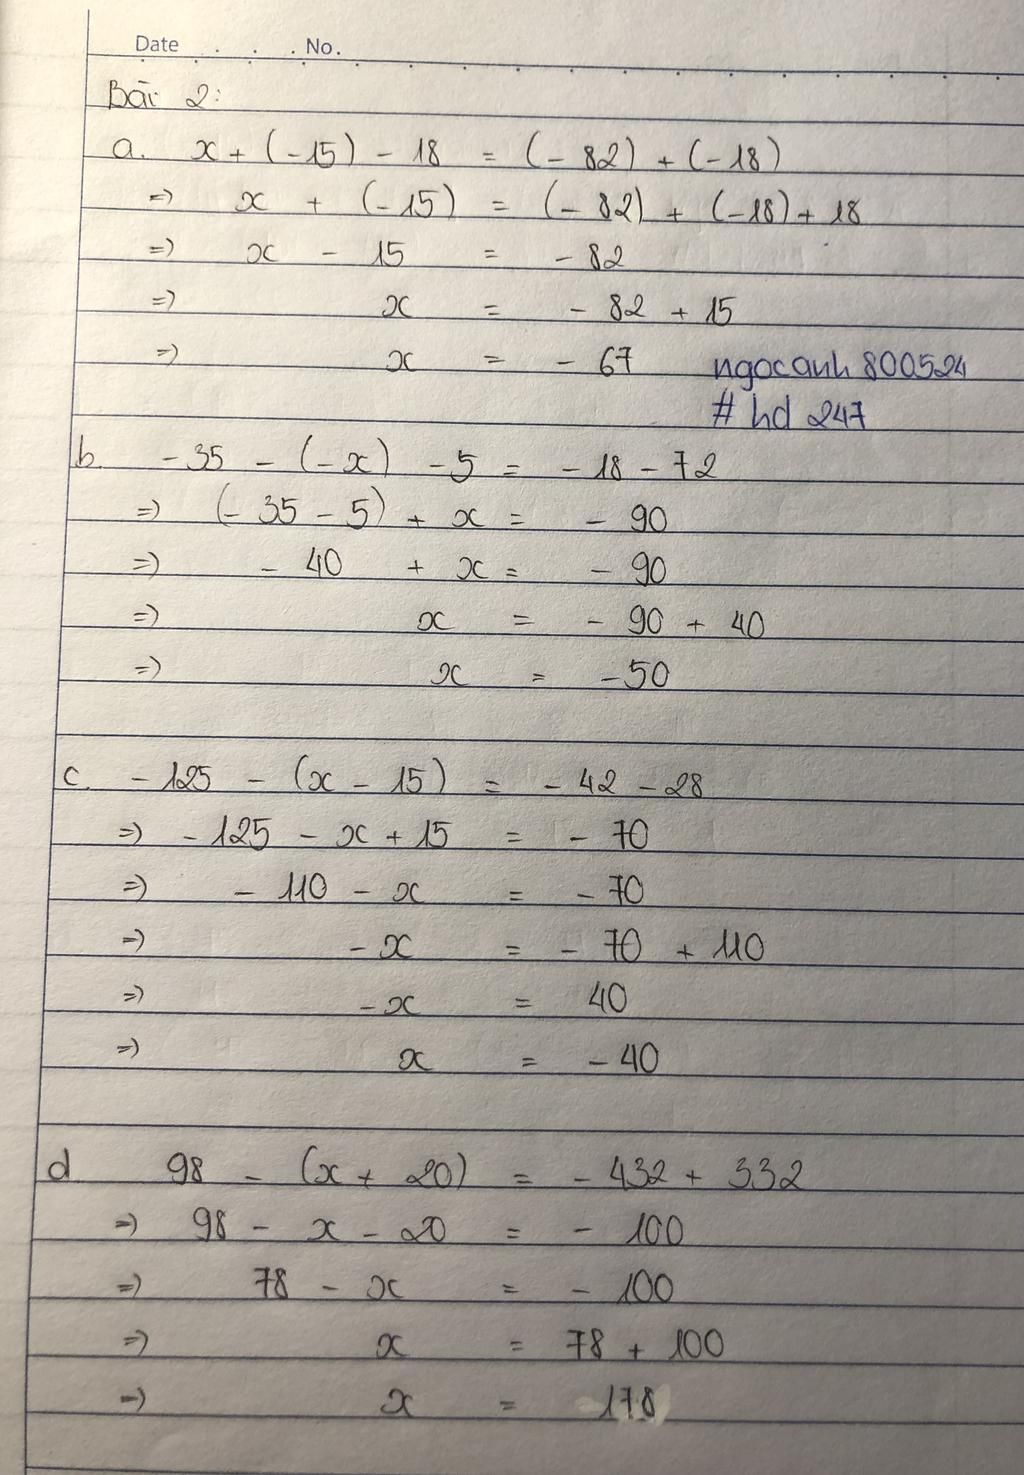 Date . . . No.
Bài 2:
a. x + (-15) - 18 = (- 82) + (-18)
=> x + (-15) = (- 82) + (-18) + 18
=> x - 15 = - 82
=> x = - 82 + 15
=> x = - 67 ngocanh 800524
# hd 247
b. - 35 - (-x) - 5 = - 18 - 72
=> (- 35 - 5) + x = - 90
=> - 40 + x = - 90
=> x = - 90 + 40
=> x = - 50
c. - 125 - (x - 15) = - 42 - 28
=> - 125 - x + 15 = - 70
=> - 110 - x = - 70
=> - x = - 70 + 110
=> - x = 40
=> x = - 40
d 98 - (x + 20) = - 432 + 332
=> 98 - x - 20 = - 100
=> 78 - x = - 100
=> x = 78 + 100
=> x = 178